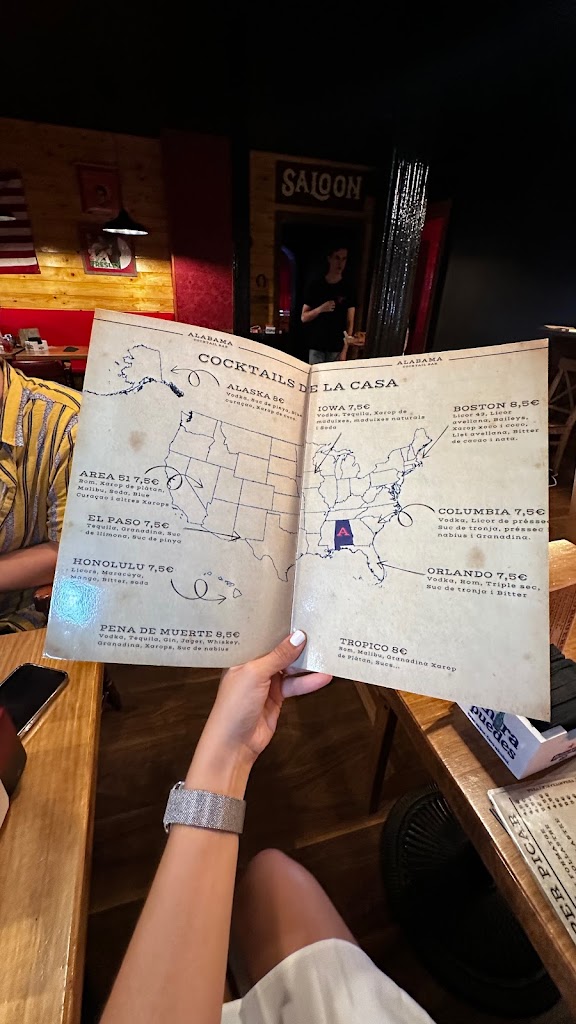 SALOON
ALABAMA
COCKTAIL BAR
ALABAMA
COCKTAIL BAR
COCKTAILS DE LA CASA
ALASKA 8€
Vodka, Suc de pinya, Blue
curaçao, Xarop de coco.
IOWA 7,5€
Vodka, Tequila, Xarop de
maduixes, maduixes naturals
i Soda
BOSTON 8,5€
Licor 43, Licor
avellana, Baileys,
Xarop xoco i coco,
Llet avellana, Bitter
de cacao i nata.
AREA 51 7,5€
Rom, Xarop de plàtan,
Malibu, Soda, Blue
Curaçao i altres Xarops
EL PASO 7,5€
Tequila, Granadina, Suc
de llimona, Suc de pinya
HONOLULU 7,5€
Licors, Maracuya,
Mango, Bitter, Soda
A
COLUMBIA 7,5€
Vodka, Licor de préssec
Suc de tronja, préssec
nabius i Granadina.
ORLANDO 7,5€
Vodka, Rom, Triple sec,
Suc de tronja i Bitter
PENA DE MUERTE 8,5€
Vodka, Tequila, Gin, Jager, Whiskey,
Granadina, Xarops, Suc de nabius
TROPICO 8€
Rom, Malibu, Granadina Xarop
de Plàtan, Sucs...
puedes
PER PICAR